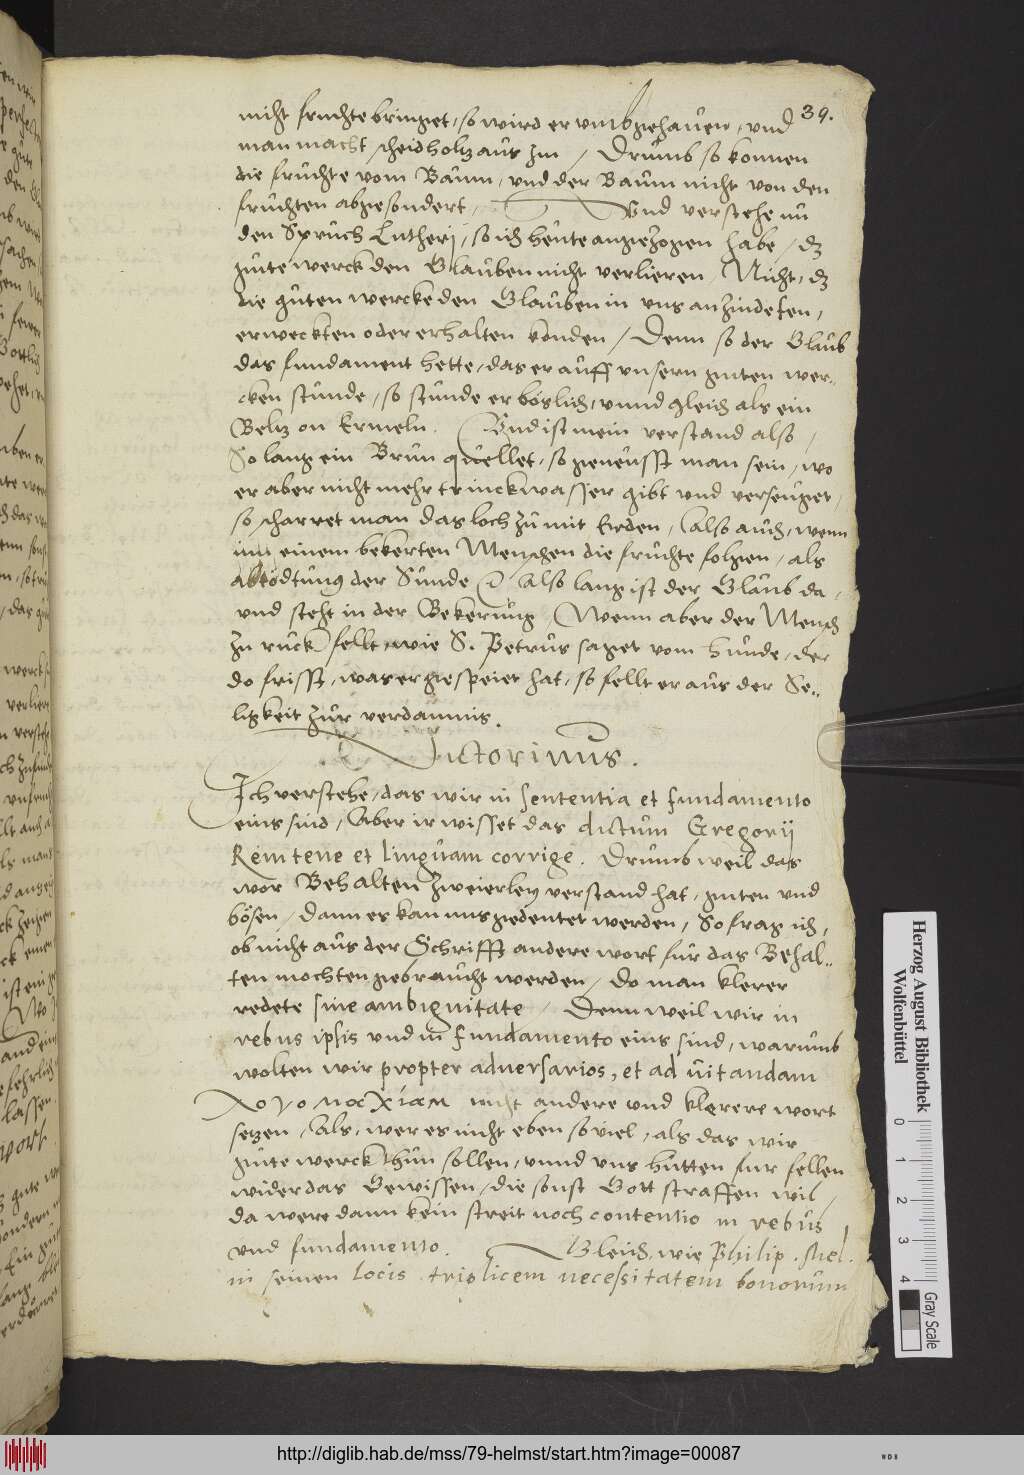 39.
nicht fruchte bringet, so wird er vmbgehauen, vnd
man macht scheidholtz aus jm / Drumb so konnen
die fruchte vom Baum, vnd der Baum nicht von den
fruchten abgesondert. Vnd verstehe nu
den Spruch Lutherj, so ich heute angezogen habe, dz
gute werck den Glauben nicht verlieren, Nicht, dz
die guten wercke den Glauben in vns anzindeten,
erweckten oder erhalten konden / Denn so der Glaub
das fundament hette, das er auff vnsern guten wer-
cken stunde, so stunde er böslich, vnnd gleich als ein
Beltz on Ermeln. Vnd ist mein verstand also,
So lang ein Brun quellet, so geneusst man sein, wo
er aber nicht mehr trinckwasser gibt vnd verseuget,
so scharret man das loch zu mit Erden, Also auch, wenn
inn einem bekerten Menschen die fruchte folgen, als
abtödtung der Sunde Also lang ist der Glaub da,
vnd steht in der Bekerung, Wenn aber der Mensch
zu ruck fellt, wie S. Petrus saget vom Hunde, der
do frisst, was er gespeiet hat, so fellt er aus der Se-
ligkeit zur verdamnis.
Victorinus.
Ich verstehe, das wir in sententia et fundamento
eins sind, Aber ir wisset das dictum Gregorij
Rem tene et linguam corrige. Drumb weil das
wor Behalten zweierley verstand hat, guten vnd
bösen, dann es kan uns gedeutet werden, So frag ich,
ob nicht aus der Schrifft andere wort fur das Behal-
ten mochten gebraucht werden, Do man klerer
redete sine ambiguitate, Denn weil wir in
rebus ipsis vnd in fundamento eins sind, warumb
wolten wir propter aduersarios, et ad uitandam
nicht andere vnd klerere wort
setzen, Als, wer es nicht eben so viel, als das wir
gute werck thun sollen, vnnd vns hutten fur fellen
wider das Gewissen, die sonst Gott straffen wil,
da were dann kein streit noch contentio in rebus
vnd fundamento. Gleich wie Philip. Mel.
in seinen locis triplicem necessitatem bonorum
Herzog August Bibliothek
Wolfenbüttel
0 1 2 3 4
Gray Scale
http://diglib.hab.de/mss/79-helmst/start.htm?image=00087